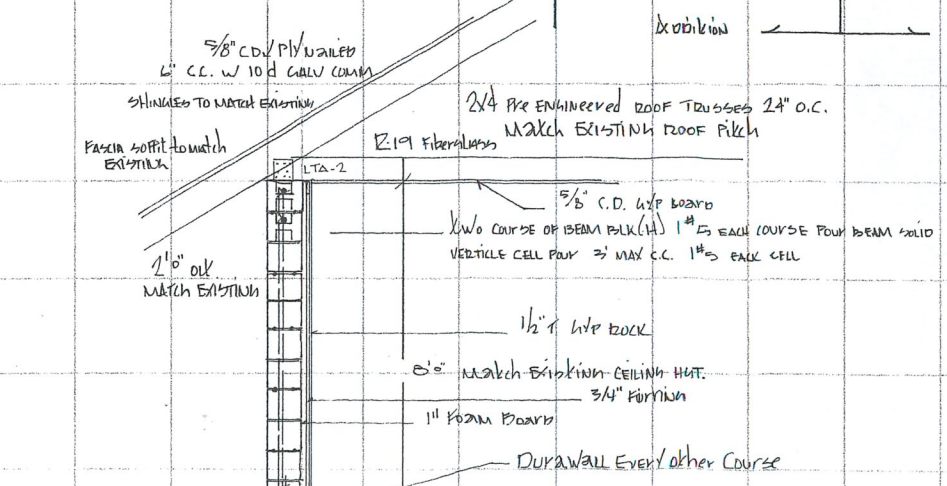 Addition
5/8" CDX Ply nailed
6" C.C. W 10d GALV COMM
SHINGLES TO MATCH EXISTING
2x4 Pre Engineered ROOF TRUSSES 24" O.C.
MATCH EXISTING ROOF PITCH
FASCIA SOFFIT to match
EXISTING
R-19 Fiberglass
LTA-2
5/8" C.D. GYP Board
TWO COURSE OF BEAM BLK(H) 1 #5 EACH COURSE POUR BEAM SOLID
VERTICLE CELL POUR 3' MAX C.C. 1 #5 EACH CELL
2'0" O.H.
MATCH EXISTING
1/2" GYP ROCK
8'0" Match Existing CEILING HGT.
3/4" Furring
1" FOAM BOARD
DURAWALL EVERY other Course